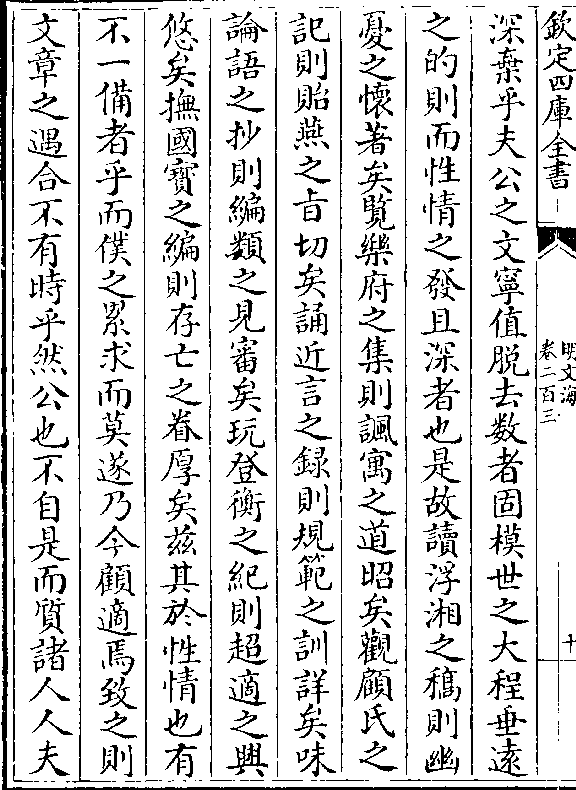 欽定四庫全書
明文海
卷二百三
十
深棄乎夫公之文寧值脱去数者固模世之大程垂遠
之的則而性情之發且深者也是故讀浮湘之稿則幽
憂之懷著矣覽樂府之集則諷寓之道昭矣觀顧氏之
記則貽燕之㫖切矣誦近言之録則規範之訓詳矣味
論語之抄則編類之見審矣玩登衡之紀則超適之興
悠矣撫國寳之編則存亡之眷厚矣兹其於性情也有
不一備者乎而僕之累求而莫遂乃今顧適焉致之則
文章之遇合不有時乎然公也不自是而質諸人人夫